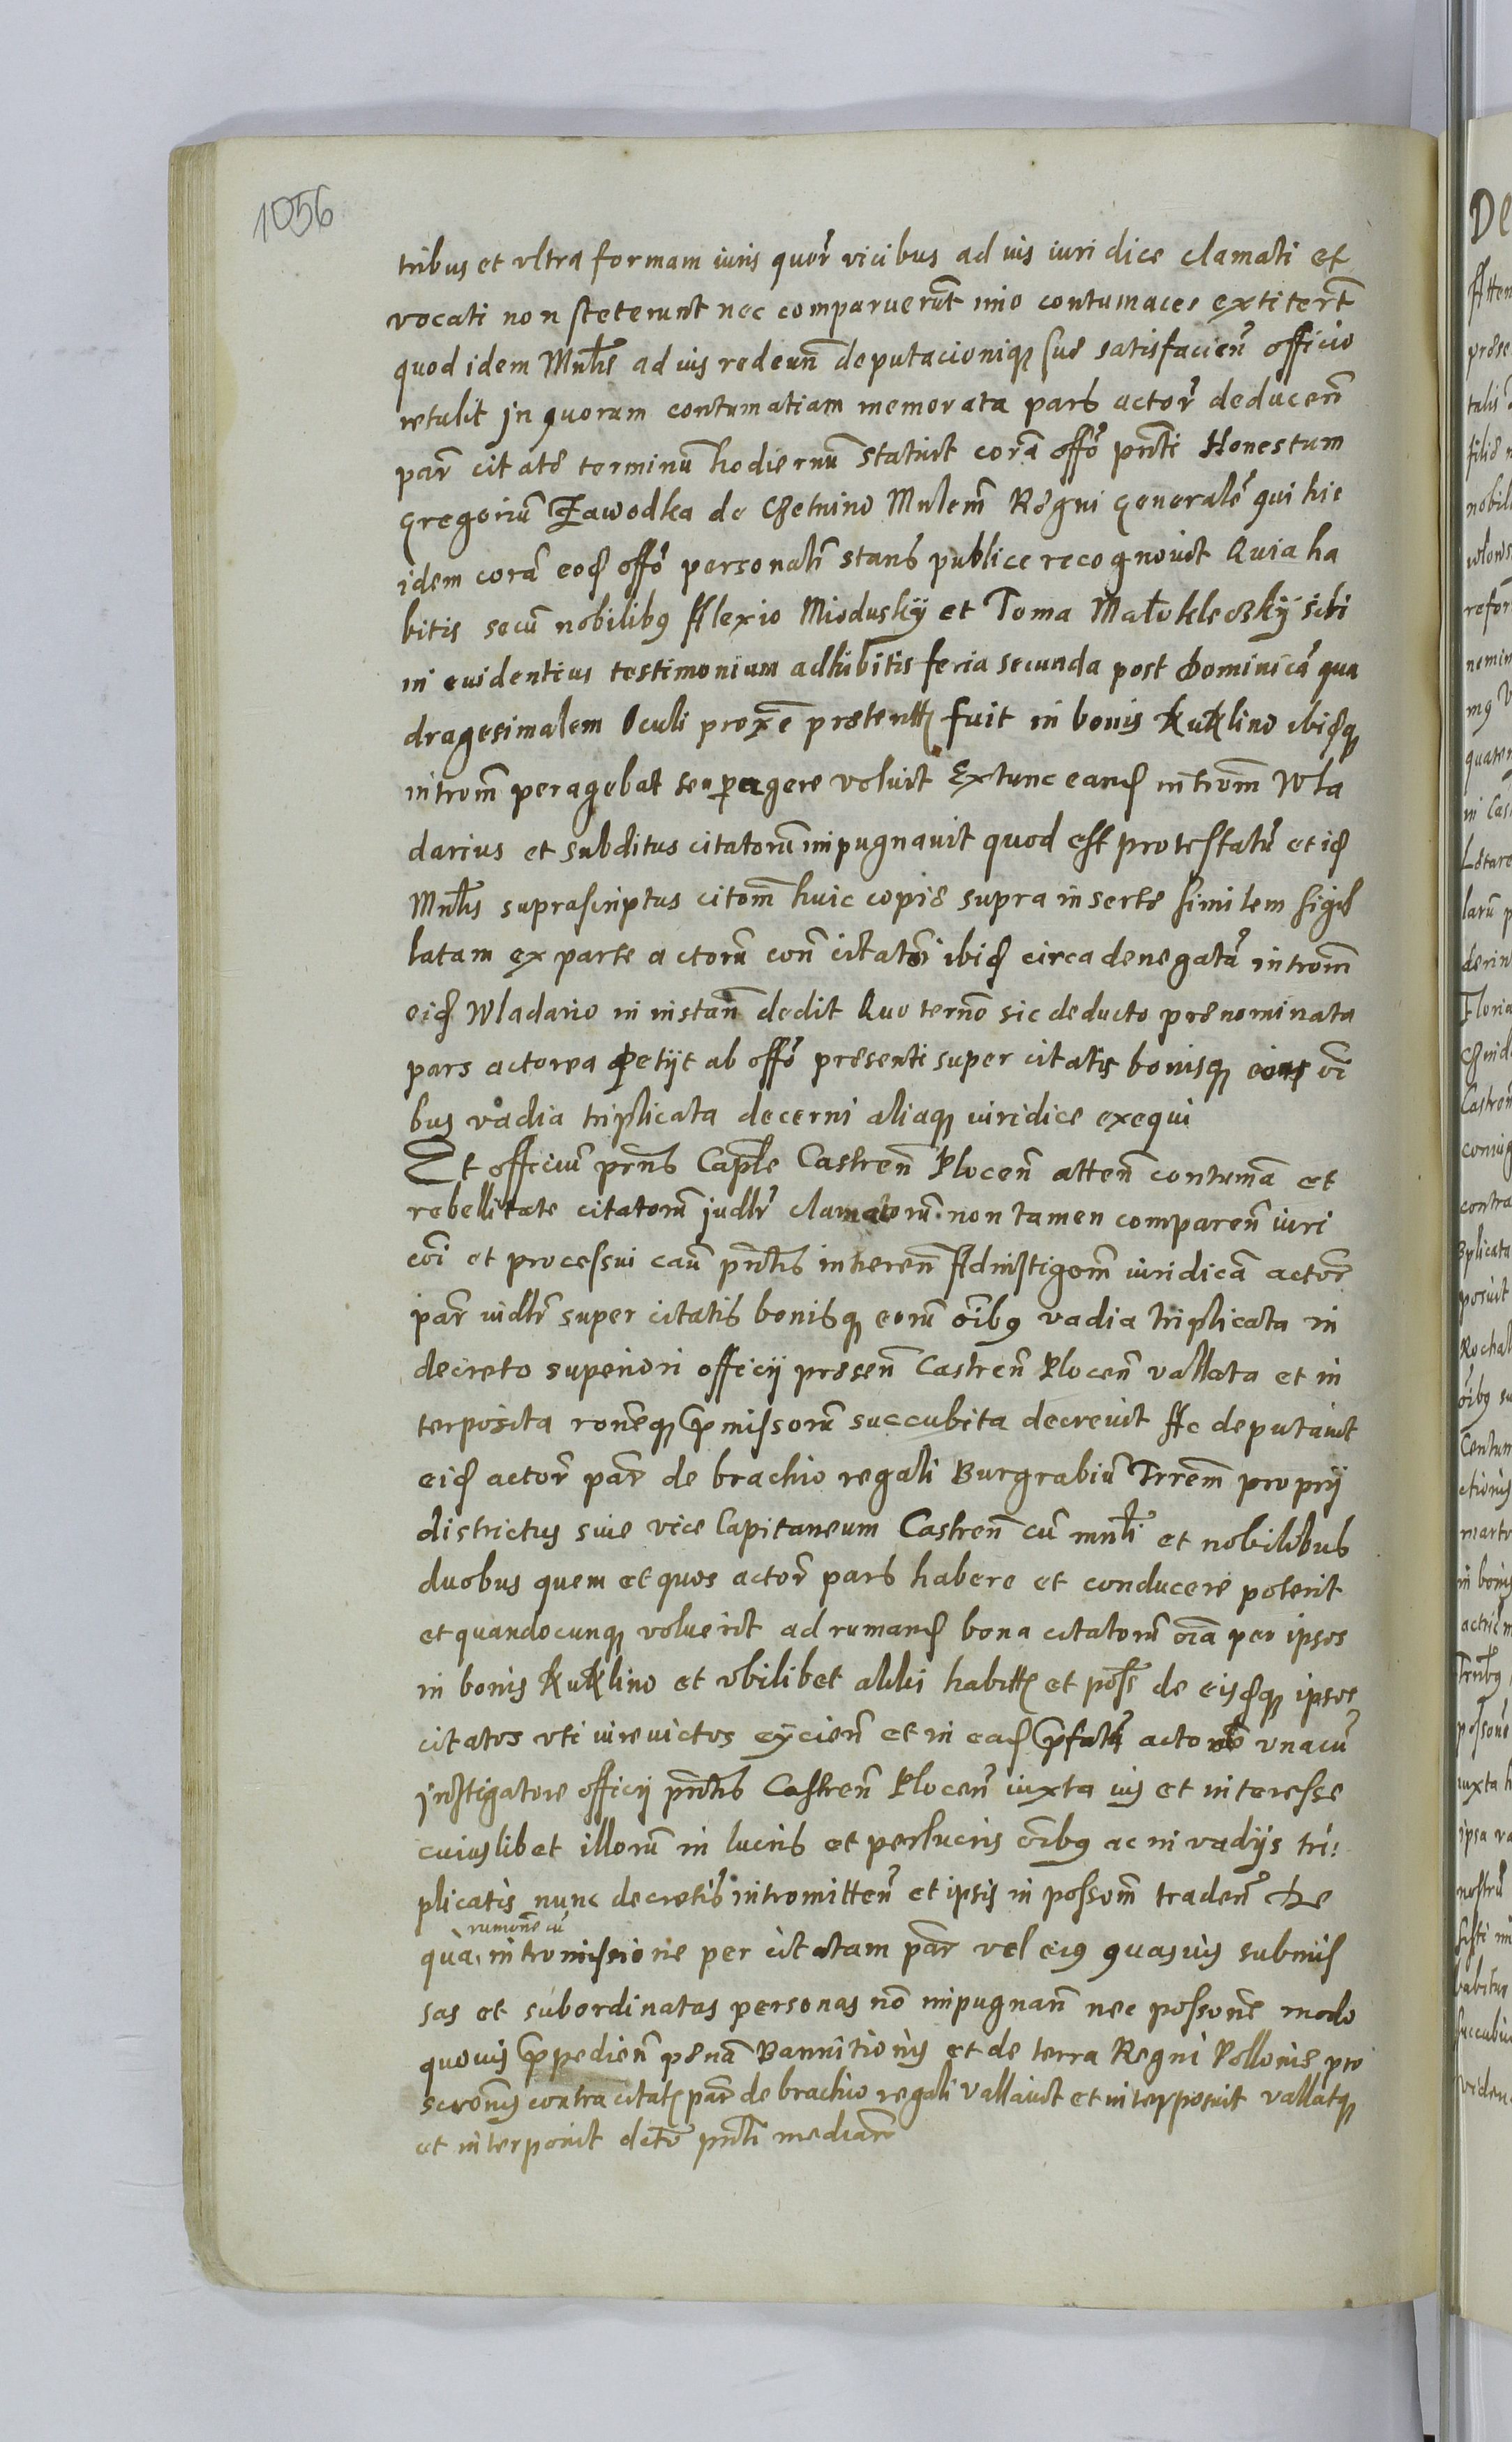 1056
tribus et vltra formam iuris quor̃ vicibus ad ius iuridice clamati et
vocati non steterunt nec comparuerũt imo contumaces extiterũt
quod idem Mnl̃is ad ius redeuñ deputacioniqȝ sue satisfacieñ officio
retulit In quorum contumatiam memorata pars actor̃ deduceñ
par̃ citatæ terminũ hodiernũ statuit corã offõ pñti Honestum
Gregoriũ Zawodka de Czetnino Mnlem̃ Regni Generalẽ qui hic
idem corã eod̃ offõ personalr̃ stans publice recognouit Quia ha
bitis secũ nobilibȝ Alexio Miodusky et Toma Małokleczky sibi
in euidentius testimonium adhibitis feria secunda post Dominicã qua
dragesimalem Oculi proxẽ præterit̃ fuit in bonis Kuklino ibidqȝ
introm̃ peragebat seu peragere voluit Extunc eand̃ introm̃ Wla
darius et subditus citatorũ impugnauit quod est protestatũ et id̃
Mnl̃is suprascriptus citom̃ huic copiæ supra insertæ similem sigil
latam ex parte actorũ coñ citatos ibid̃ circa denegatã introm̃
eid̃ Wladario in instañ dedit Quo terñо sic deducto prænominata
pars actorea petijt ab offõ præsenti super citatis bonisqȝ eius oĩ
bus vadia triplicata decerni aliaqȝ iuridice exequi
Et officiũ prñs Capl̃e Castreñ Ploceñ atteñ contumã et
rebellitate citatorũ judlr̃ clamatorũ non tamen compareñ iuri
cõi et processui cauſ̃ pñtis inhereñ Ad instigom̃ iuridicã actor̃
par̃ iudlr̃ super citatis bonisqȝ eorũ oĩbȝ vadia triplicata in
decreto superiori officij præseñ Castreñ Ploceñ vallata et in
terposita roneqȝ p̃missorũ succubita decreuit Ac deputauit
eid̃ actor̃ par̃ de brachio regali Burgrabiũ Trrem̃ proprij
districtus siue vice Capitaneum Castreñ cũ mnl̃i et nobilibus
duobus quem et quos actor̃ pars habere et conducere poterit
et quandocunqȝ voluerit ad rumand̃ bona citatorũ oĩa per ipsos
in bonis Kuklino et vbilibet alibi habit̃ et poss̃ de eisdqȝ ipsos
citatos vti iureuictos eÿcieñ et in ead̃ p̃fatã actorẽ vnacũ
Instigatore officij pñtis Castreñ Ploceñ iuxta ius et interesse
cuiuslibet illorũ in lucris et perlucris oĩbȝ ac in vadijs tri:
plicatis nunc decretis intromitteñ et ipsis in possom̃ tradeñ De
rumone cũ
qua intromissione per citatam par̃ vel eiȝ quasuis submis
sas et subordinatas personas nõ impugnañ nec possonẽ modo
quouis p̃pedieñ pœnã Bannitionis et de terra Regni Polloniæ pro
scronis contra citat̃ par̃ de brachio regali vallauit et interposuit vallatqȝ
et interponit dctõ pñti mediañ